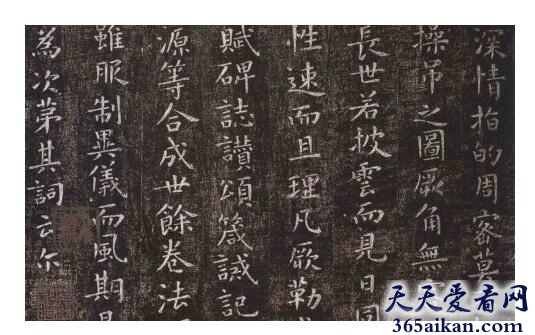 深情指的周密莫
操吊之圖厥角無
長世若披雲而見日同
性速而且理凡厥勒
賦碑誌讚頌箴誡記
源等合成世餘卷法
雖服制異儀而風期
為次第其詞云尔
天天爱看网
365aikan.com